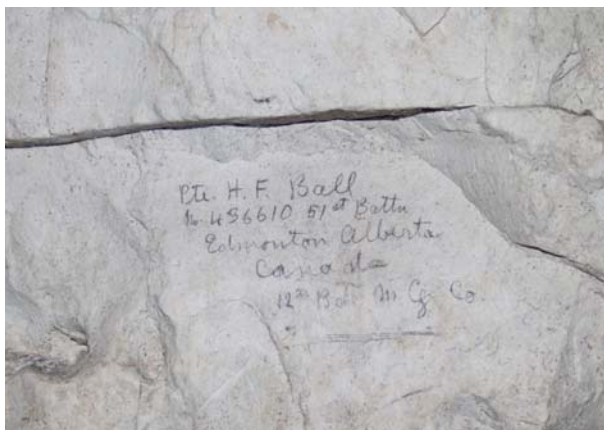 Pte. H. F. Ball
No. 436610 51st Battn
Edmonton Alberta
Canada
12th Bde M G Co.